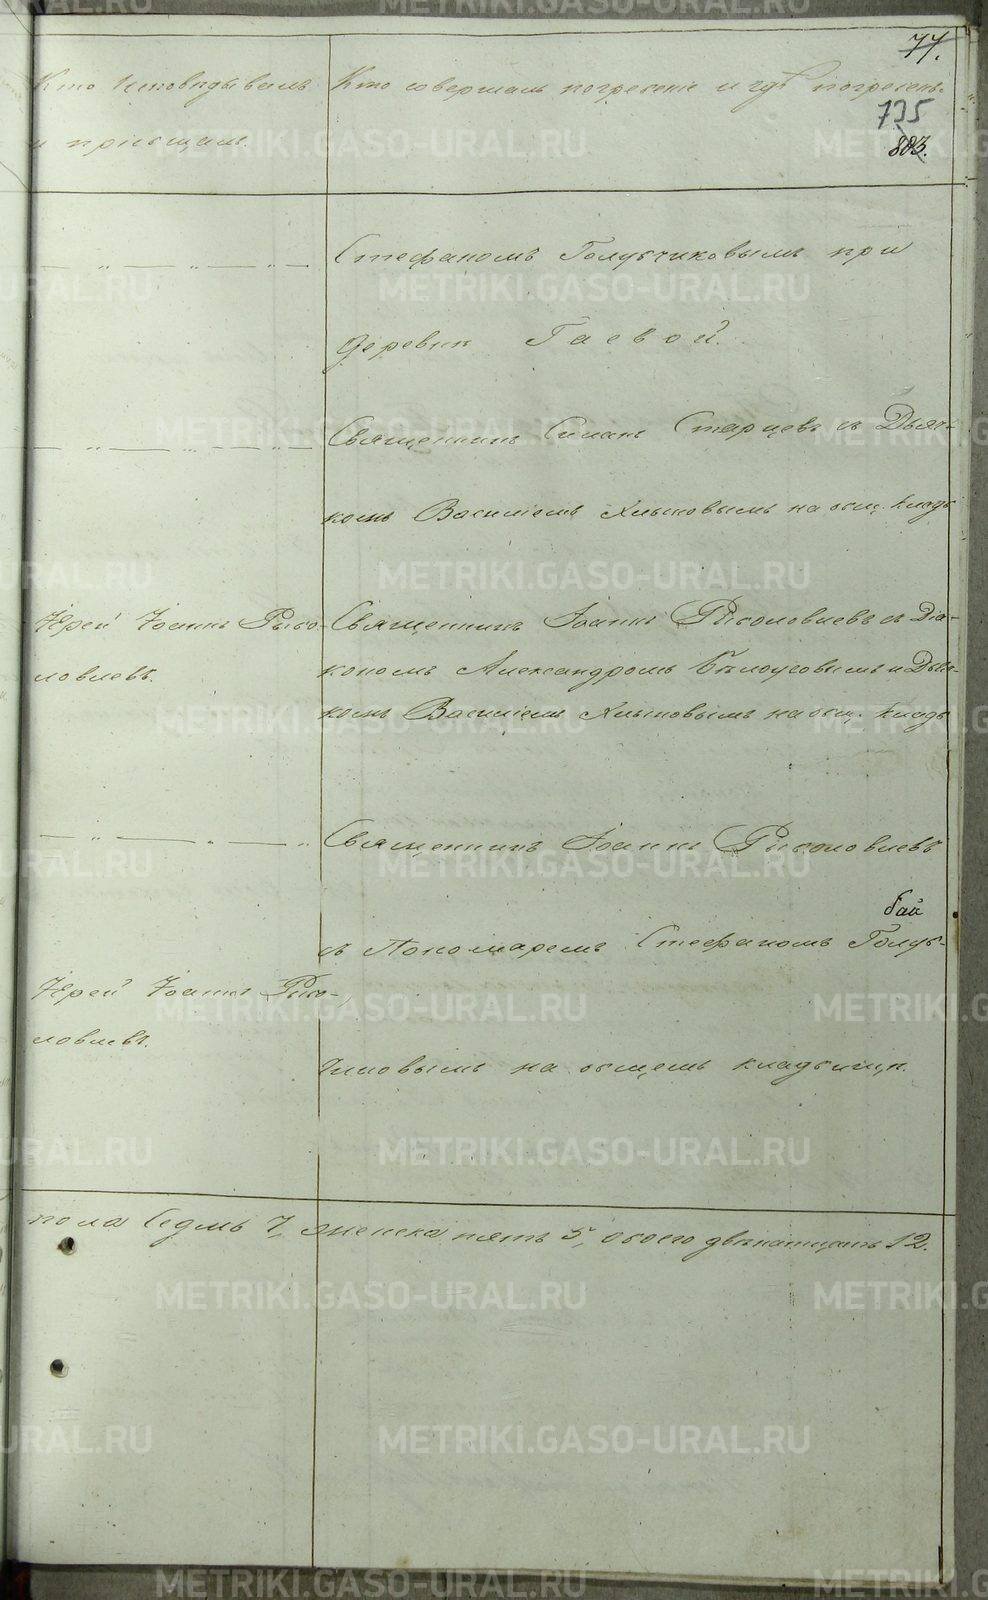 77.
Кто исповѣдывалъ
и пріобщалъ.
Кто совершалъ погребеніе и гдѣ погребенъ.
735
883.
Стефаномъ Голубчиковымъ при
деревнѣ Гаевой.
Священникъ Симонъ Старцевъ съ Дьяч-
комъ Василіемъ Хлыновымъ на общ. кладб
Іерей Іоаннъ Рысо-
ловлевъ.
Священникъ Іоаннъ Рысоловлевъ съ Діа-
кономъ Александромъ Бѣлоуговымъ и Дьяч-
комъ Василіемъ Хлыновымъ на общ. кладб
Священникъ Іоаннъ Рысоловлевъ
бай
съ Пономаремъ Стефаномъ Голуб-
Іерей Іоаннъ Рысо-
ловлевъ.
чиковымъ на общемъ кладбищѣ.
пола Седмь 7, женска пять 5, обоего двѣнатцать 12.
METRIKI.GASO-URAL.RU